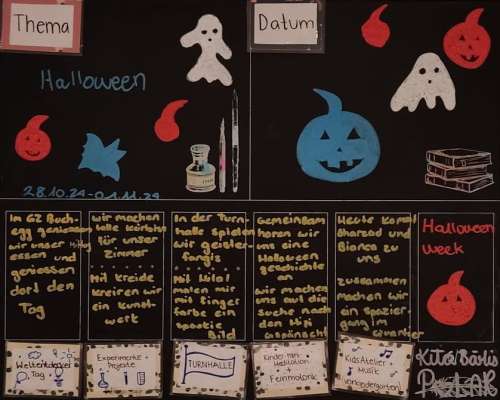 Thema
Datum
Halloween
28.10.24-01.11.24
Im GZ Buch-
egg geniessen
wir unser Mittag
essen und
geniessen
dort den
Tag
wir machen
tolle Kürbise
für unser
Zimmer
Mit Kreide
kreiren wir
ein Kunst-
wert
In der Turn-
halle spielen
wir geister-
fangis
malen mir
mit Finger
farbe ein
Bild
Gemeinsam
hören wir
uns eine
Halloween
geschichte
an
wir machen
uns auf die
suche nach
den Mini
Heute kommt
Sharzad und
Bianca zu
uns
zusammen
machen wir
ein Spazier-
gang im
Halloween
week
Weltentdecker
Tag
Experimente +
Projekte
TURNHALLE
Kinder Mini
Meditation
+
Feinmotorik
KidsAtelier
+
Musik
(Vorkindergarten)
Kita Bärlis
POLAR